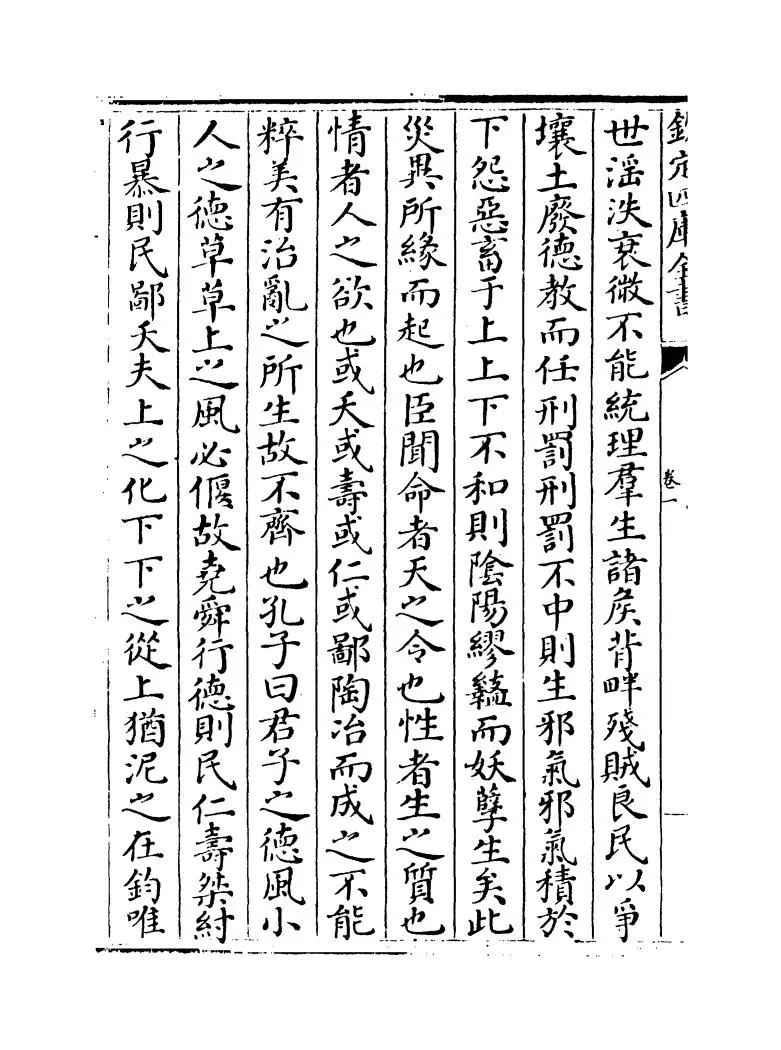 欽定四庫全書
卷一
世淫泆衰微不能統理羣生諸侯背畔殘賊良民以爭
壤土廢德教而任刑罰刑罰不中則生邪氣邪氣積於
下怨惡畜于上上下不和則陰陽繆盭而妖孽生矣此
災異所緣而起也臣聞命者天之令也性者生之質也
情者人之欲也或夭或壽或仁或鄙陶冶而成之不能
粹美有治亂之所生故不齊也孔子曰君子之德風小
人之德草草上之風必偃故堯舜行德則民仁壽桀紂
行暴則民鄙夭夫上之化下下之從上猶泥之在鈞唯